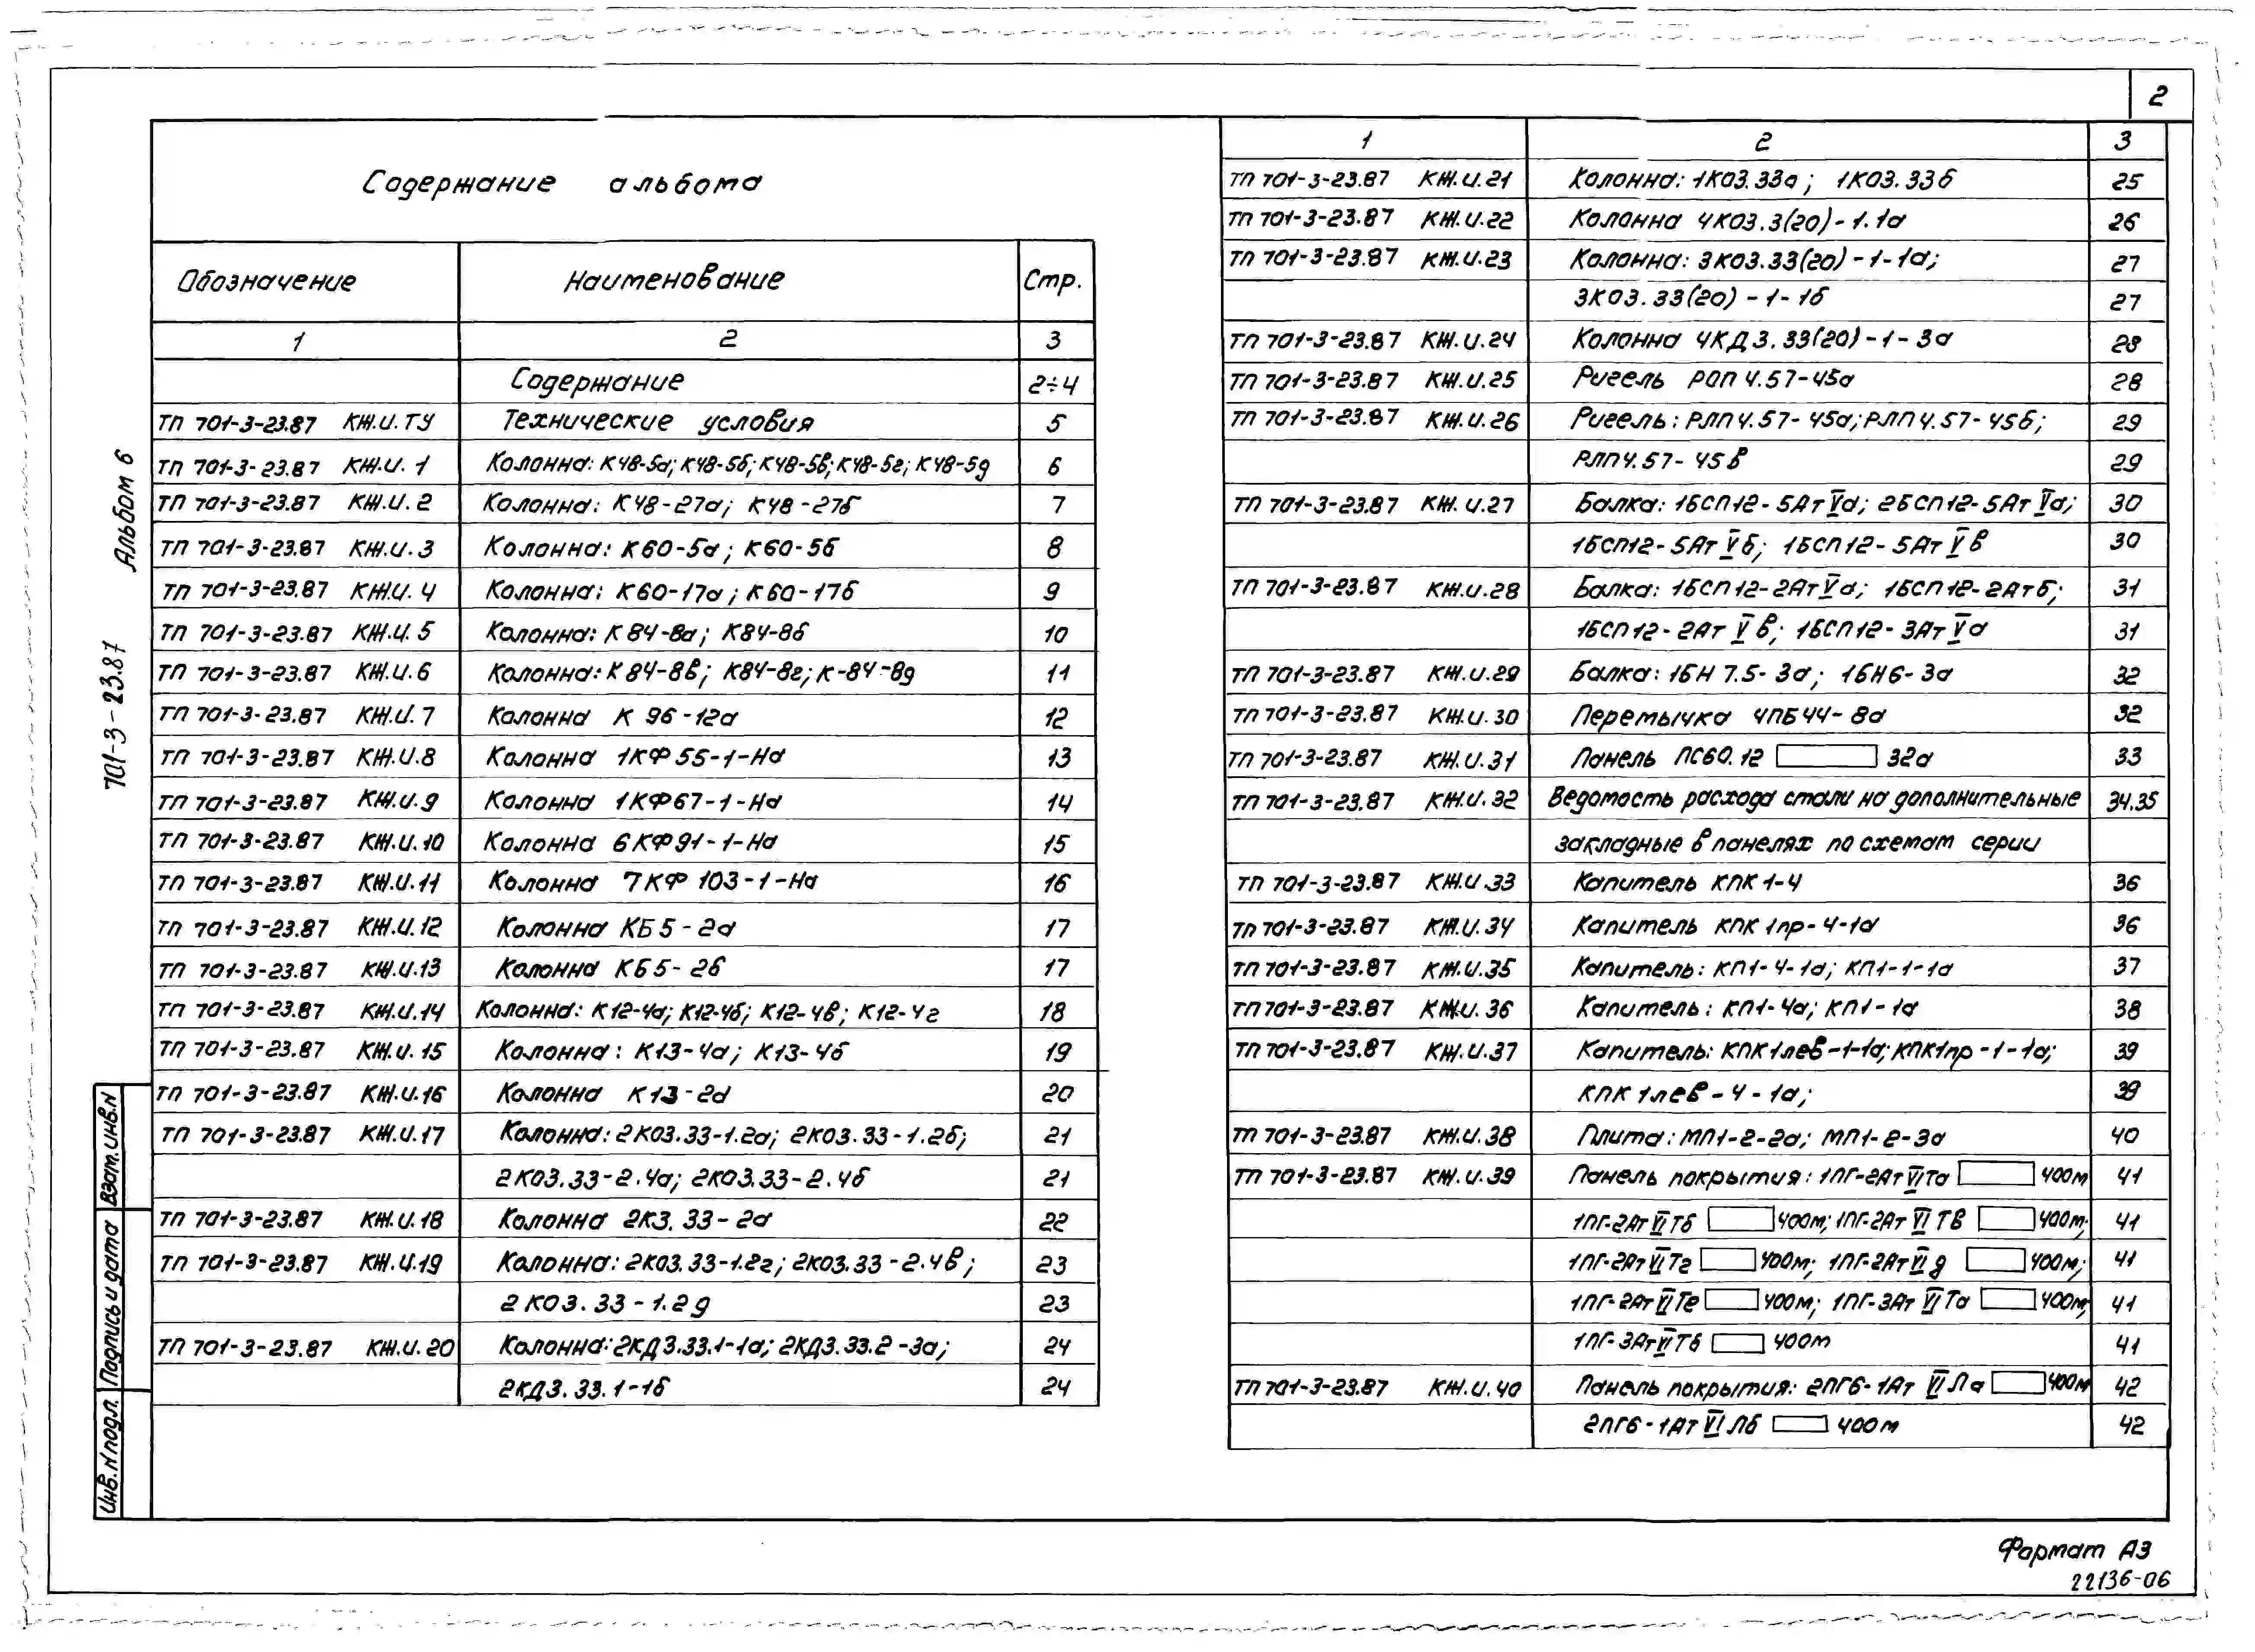 2
Содержание альбома
Обозначение Наименование Стр.
1 2 3
Содержание 2÷4
ТП 701-3-23.87 КЖ.И.ТУ Технические условия 5
ТП 701-3-23.87 КЖ.И.1 Колонна: К48-5а; К48-5б; К48-5в; К48-5г; К48-5д 6
ТП 701-3-23.87 КЖ.И.2 Колонна: К48-27а; К48-27б 7
ТП 701-3-23.87 КЖ.И.3 Колонна: К60-5а; К60-5б 8
ТП 701-3-23.87 КЖ.И.4 Колонна: К60-17а; К60-17б 9
ТП 701-3-23.87 КЖ.И.5 Колонна: К84-8а; К84-8б 10
ТП 701-3-23.87 КЖ.И.6 Колонна: К84-8в; К84-8г; К-84-8д 11
ТП 701-3-23.87 КЖ.И.7 Колонна К 96-12а 12
ТП 701-3-23.87 КЖ.И.8 Колонна 1КФ55-1-На 13
ТП 701-3-23.87 КЖ.И.9 Колонна 1КФ67-1-На 14
ТП 701-3-23.87 КЖ.И.10 Колонна 6КФ91-1-На 15
ТП 701-3-23.87 КЖ.И.11 Колонна 7КФ103-1-На 16
ТП 701-3-23.87 КЖ.И.12 Колонна КБ5-2а 17
ТП 701-3-23.87 КЖ.И.13 Колонна КБ5-2б 17
ТП 701-3-23.87 КЖ.И.14 Колонна: К12-4а; К12-4б; К12-4в; К12-4г 18
ТП 701-3-23.87 КЖ.И.15 Колонна: К13-4а; К13-4б 19
ТП 701-3-23.87 КЖ.И.16 Колонна К13-2а 20
ТП 701-3-23.87 КЖ.И.17 Колонна: 2К03.33-1.2а; 2К03.33-1.2б; 21
2К03.33-2.4а; 2К03.33-2.4б 21
ТП 701-3-23.87 КЖ.И.18 Колонна 2К3.33-2а 22
ТП 701-3-23.87 КЖ.И.19 Колонна: 2К03.33-1.2г; 2К03.33-2.4в; 23
2К03.33-1.2д 23
ТП 701-3-23.87 КЖ.И.20 Колонна: 2КД3.33.1-1а; 2КД3.33.2-3а; 24
2КД3.33.1-1б 24
1 2 3
ТП 701-3-23.87 КЖ.И.21 Колонна: 1К03.33а; 1К03.33б 25
ТП 701-3-23.87 КЖ.И.22 Колонна 4К03.3(20)-1.1а 26
ТП 701-3-23.87 КЖ.И.23 Колонна: 3К03.33(20)-1-1а; 27
3К03.33(20)-1-1б 27
ТП 701-3-23.87 КЖ.И.24 Колонна 4КД3.33(20)-1-3а 28
ТП 701-3-23.87 КЖ.И.25 Ригель РОП4.57-45а 28
ТП 701-3-23.87 КЖ.И.26 Ригель: РЛП4.57-45а; РЛП4.57-45б; 29
РЛП4.57-45в 29
ТП 701-3-23.87 КЖ.И.27 Балка: 1БСП12-5АтVа; 2БСП12-5АтVа; 30
1БСП12-5АтVб; 1БСП12-5АтVв 30
ТП 701-3-23.87 КЖ.И.28 Балка: 1БСП12-2АтVа; 1БСП12-2Атб; 31
1БСП12-2АтVв; 1БСП12-3АтVа 31
ТП 701-3-23.87 КЖ.И.29 Балка: 1БН7.5-3а; 1БН6-3а 32
ТП 701-3-23.87 КЖ.И.30 Перемычка 4ПБ44-8а 32
ТП 701-3-23.87 КЖ.И.31 Панель ПС60.12 32а 33
ТП 701-3-23.87 КЖ.И.32 Ведомость расхода стали на дополнительные 34.35
закладные в панелях по схемам серии
ТП 701-3-23.87 КЖ.И.33 Капитель КПК1-4 36
ТП 701-3-23.87 КЖ.И.34 Капитель КПК1пр-4-1а 36
ТП 701-3-23.87 КЖ.И.35 Капитель: КП1-4-1а; КП1-1-1а 37
ТП 701-3-23.87 КЖ.И.36 Капитель: КП1-4а; КП1-1а 38
ТП 701-3-23.87 КЖ.И.37 Капитель: КПК1лев-1-1а; КПК1пр-1-1а; 39
КПК1лев-4-1а; 39
ТП 701-3-23.87 КЖ.И.38 Плита: МП1-2-2а; МП1-2-3а 40
ТП 701-3-23.87 КЖ.И.39 Панель покрытия: 1ПГ-2АтVIТа 400м 41
1ПГ-2АтVIТб 400м; 1ПГ-2АтVIТв 400м; 41
1ПГ-2АтVIТг 400м; 1ПГ-2АтVIд 400м; 41
1ПГ-2АтVIТе 400м; 1ПГ-3АтVIТа 400м; 41
1ПГ-3АтVIТб 400м 41
ТП 701-3-23.87 КЖ.И.40 Панель покрытия: 2ПГ6-1АтVIПа 400м 42
2ПГ6-1АтVIПб 400м 42
701-3-23.87 Альбом 6
Инв.N подл. Подпись и дата Взам.инв.N
Формат А3
22136-06